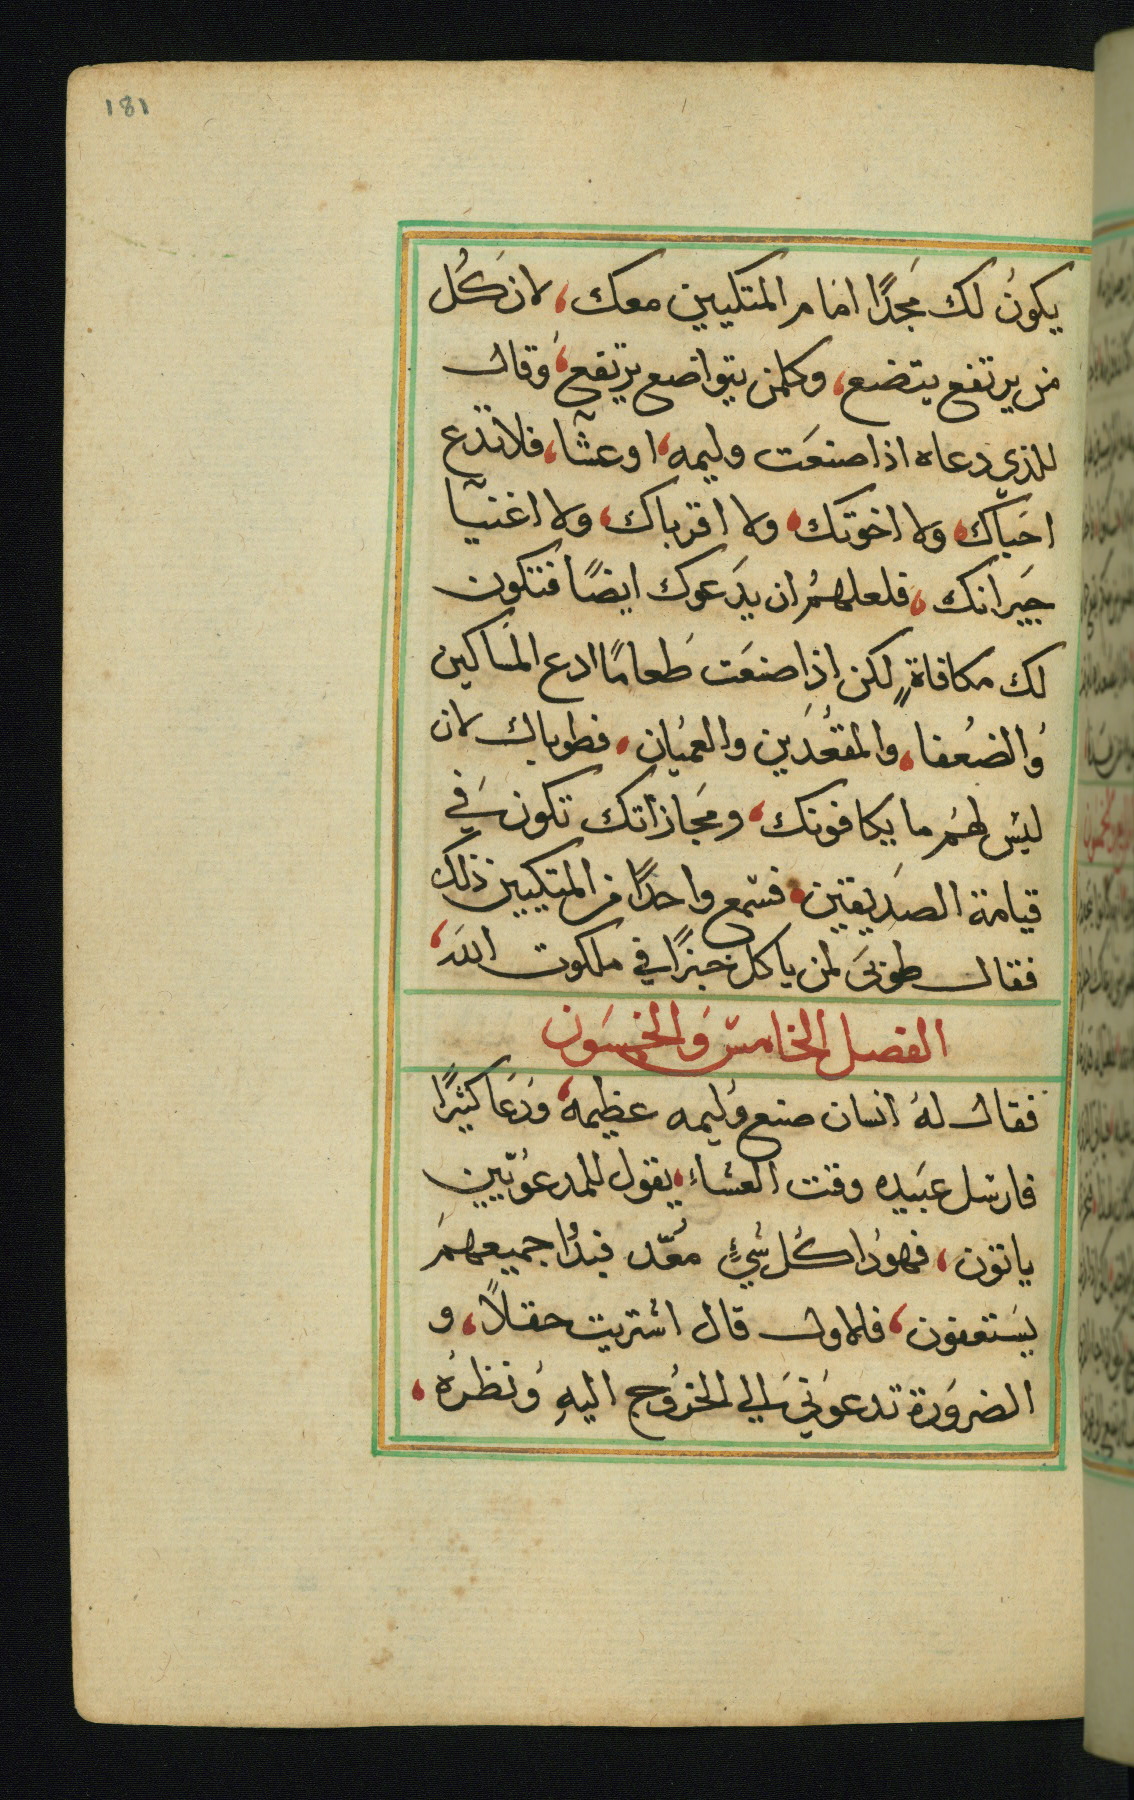 181
يكونُ لك مَجدًا امام المتكيين معك، لان كُل
من يرتفع يتضع، وكلمن يتواضع يرتفع، وقال
للذي دعاه اذا صنعَت وليمه، اوعشآ، فلا تدع
احبآك، ولا اخوتك، ولا اقرباك، ولا اغنيآ
جيَرانك، فلعلهمُ ان يدَعوك ايضًا فتكون
لك مكافاةٍ، لكن اذا صنعَت طَعامًا ادع المسَاكين
وُالضعُفا، والمقعُدَين والعميُان، فطوباك لان
ليس لهمُ ما يكافونك، ومَجازاتك تكون فَي
قيامة الصدَيقين، فسمع واحدًا من المتكيين ذلك
فقال طوبىَ لمن ياكل خبزًا في ملكوت اللهَ،
الفصل الخامس وَالخمسَون
فقال لهُ انسان صنع وُليمه عظيمه، وَدَعَا كثيرًا
فارسل عبَيده وقت العشاء، يقول للمدعوُيين
ياتون، فهوُدا كُل شُيءٍ معُّد فبدُا جميعهمَ
يسَتعفون، فالاول قال اشتريت حقلاً، و
الضروَرة تدعوَني الَي الخروُج اليهِ وُنظرُه،